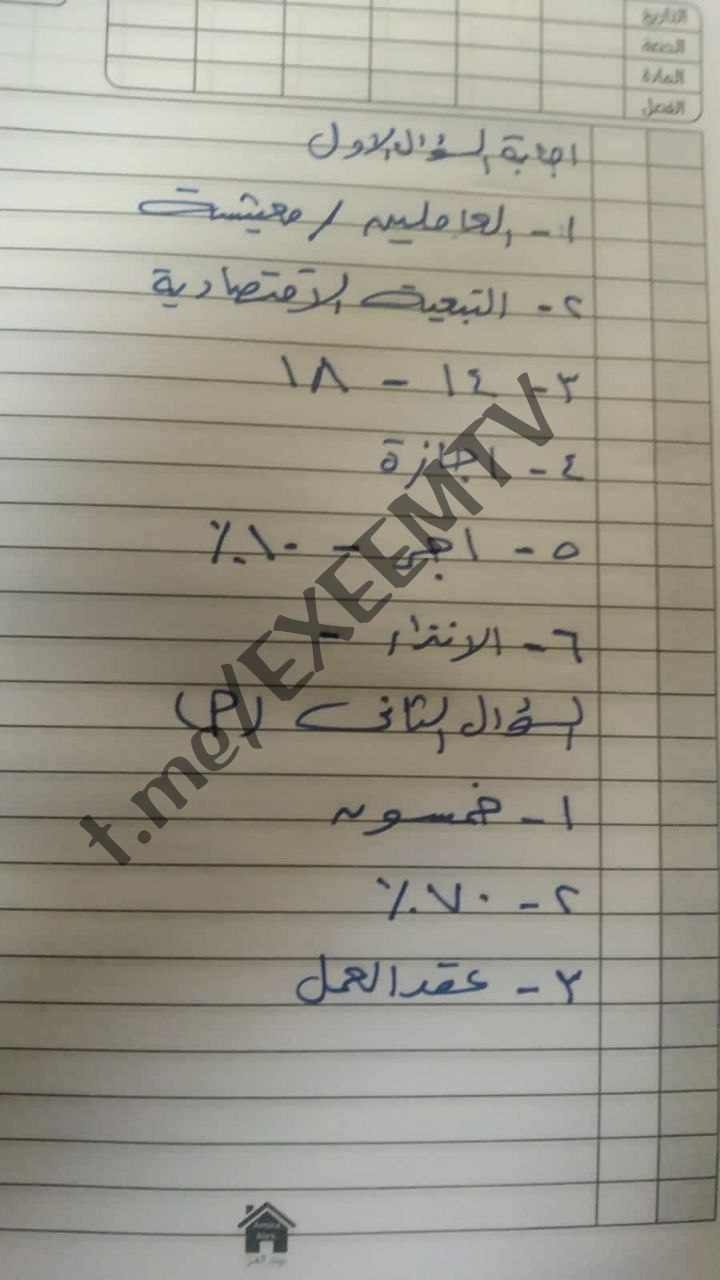 التاريخ
الصحة
المادة
الفصل
اجابة السؤال الاول
١- العاملين / معيشة
٢- التبعية الاقتصادية
٣- ١٤ - ١٨
٤- اجازة
٥- اجر - ١٠٪
٦- الانتاج -
السؤال الثاني (P)
١- خمسون
٢- ٧٠٪
٣- عقد العمل
t.me/EXEEMTV